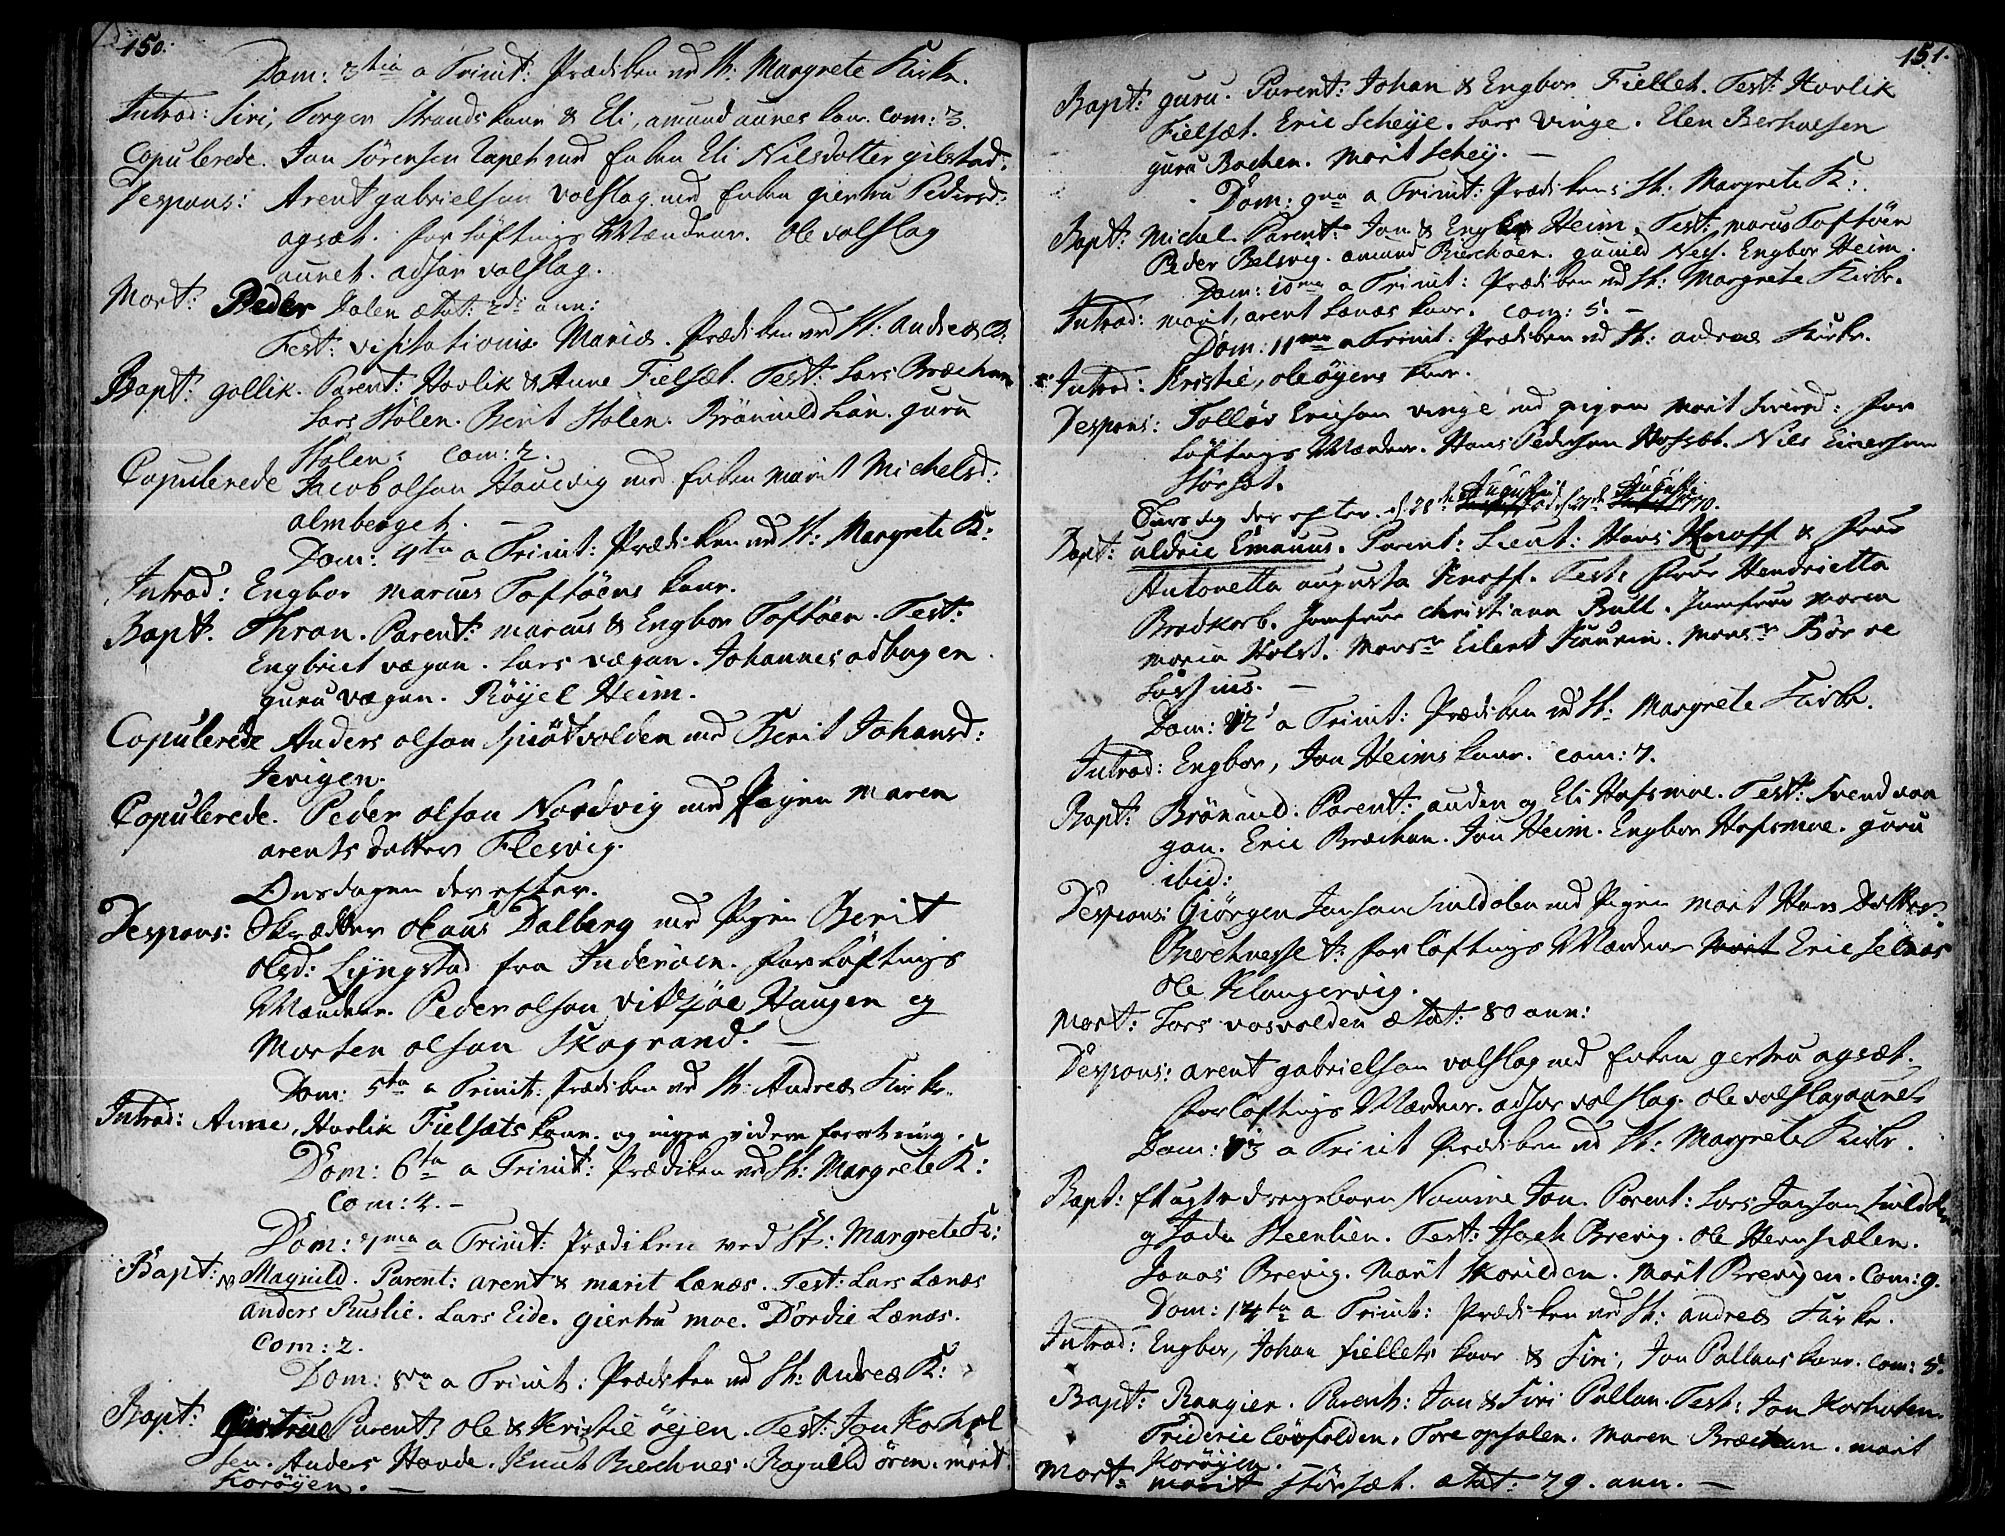 150.
Dom: 3tia a Trinit: Prædiken ved St: Margrete Kirke.
Introd: Siri, Torger Strands kone & Eli, amund aunes kone. Com: 3.
Copulerede. Jon Sørensen med Enken Eli Nilsdatter gilstad.
Despons: Arent gabrielsen valslag med Enken giertru Pedersd:
agsæt. forløftnings Mændene. Ole valslag
aunet. adser valslag.
Mort: Peder Dalen ætat: 2di ann:
Fest: visitationis Mariæ. Prædiken ved St: Andreæ K:
Bapt: gollik. Parent: Havlik & Anne Fielsæt. Test: Lars Bræchan
Lars Stølen. Berit Stølen. Brønnild Lian. guru
Stølen. Com: 2.
Copulerede Jacob olsen Hauevig med Enken Marit Michelsd:
almberget. —
Dom: 4ta a Trinit: Prædiken ved St: Margrete K:
Introd: Engbor Marcus Toftøens kone.
Bapt. Thron. Parent: marcus & Engbor Toftøen. Test:
Engbriet vægan. Lars vægan. Johannes adbugen.
guru vægan. Røyel Heim.
Copulerede Anders olsen Spiøtvolden med Berit Johansd:
Jerigen.
Copulerede. Peder olsen Nordvig med Pigen Maren
arents datter Flesvig.
Onsdagen der efter.
Despons: Skrædder Olaus Dalberg med Pigen Berit
olsd: Lyngstad fra Inderøen. forløftnings
Mændene. Peder olsen vitsøe Haugen og
Morten olsen Skagrand. —
Dom: 5ta a Trinit: Prædiken ved St: Andreæ Kirke.
Introd: Anne, Havlik Fielsæts kone. og ingen videre forretning.
Dom: 6ta a Trinit: Prædiken ved St: Margrete K:
Com: 4. —
Dom: 7ma a Trinit: Prædiken ved St: Margrete K:
Bapt: NB Magnild. Parent: arent & marit Lænæs. Test: Lars Lænæs
anders Ruslie. Lars Eide. giertru moe. Dordie Lænæs.
Com: 2.
Dom: 8va a Trinit: Prædiken ved St: Andreæ K:
Bapt: Giertrue Parent: Ole & Kristie øyen. Test: Jon
sen. Anders Hovde. Knut Bechnes. Ragnild ören. marit
Korøyen. —
151.
Bapt: guru. Parent: Johan & Engbor Fiellet. Test: Havlik
Fielsæt. Eric Scheye. Lars vinge. Elen Berhalsen
guru Bachen. Marit Schey. —
Dom: 9na a Trinit: Prædiken i St: Margrete K:
Bapt: Michel. Parent: Jon & Engbor Heim. Test: marcus Toftøen
Peder Belsvig. amund Bierchøen. gunild Ness. Engbor Heim.
Dom: 10ma a Trinit: Prædiken ved St: Margrete Kirke.
Introd: marit, arent Lænæs kone. Com: 5. —
Dom: 11ma a Trinit: Prædiken ved St: andreæ Kirke.
Introd: Kristie, ole øyens kone.
Despons: Tolløv Ericsen vinge med pigen Marit Siversd: for
løftnings Mændene. Hans Pedersen Hofsæt. Nils Einersen
Størsæt.
Tirsdag der efter d: 28de Augusti 1770.
Bapt: uldric Emanus. Parent: Lieut: Hans Knoff & frue
Antonetta augusta Knoff. Test: frue Hendrietta
Bredkorb. Jomfrue Christiana Bull. Jomfrue Maren
maria Holst. Monsr Eilert Kaurin. Monsr Børre
Lossius. —
Dom: 12 a Trinit: Prædiken ved St: Margrete Kirke.
Introd: Engbor, Jon Heims kone. Com: 7.
Bapt: Brønnild. Parent: auden og Eli Hofsmoe. Test: Svend vaa
gan. Eric Bræchan. Jon Heim. Engbor Hofsmoe. guru
ibid:
Despons: Giørgen Jonsen med Pigen Marit Hans Datter
forløftnings Mændene Eric Selnæs
Ole Klungervig.
Mort: Lars vasvolden ætat: 80 ann:
Despons: arent gabrielsen valslag med Enken gertru agsæt.
forløftnings Mændene. adser valslag. Ole valslagaunet
Dom: 13 a Trinit Prædiken ved St: Margrete Kirke.
Bapt: Et ugte drengebarn Nomine Jon. Parent: Lars Jonsen
Steenlien. Test: Isach Brevig. Ole Hernsælen.
Jonas Brevig. Marit Skorilden. Marit Brevigen. Com: 9.
Dom: 14ta a Trinit: Prædiken ved St: andreæ Kirke.
Introd: Engbor, Johan fiellets kone & Siri, Jon Pallans kone. Com: 5.
Bapt: Rangier. Parent: Jon & Siri Pallan. Test: Jon Korhaten.
Frideric Løvfalden. Tore opsalen. Maren Bræchan. marit
Korøyen.
Mort: marit Størsæt. ætat: 79. ann. —